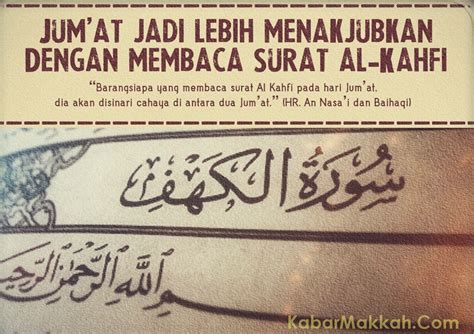 JUM'AT JADI LEBIH MENAKJUBKAN
DENGAN MEMBACA SURAT AL-KAHFI
"Barangsiapa yang membaca surat Al Kahfi pada hari Jum'at,
dia akan disinari cahaya di antara dua Jum'at." (HR. An Nasa'i dan Baihaqi)
سُورَةُ الكَهْفِ
بِسْمِ اللَّهِ الرَّحْمَٰنِ الرَّحِيمِ
KabarMakkah.Com